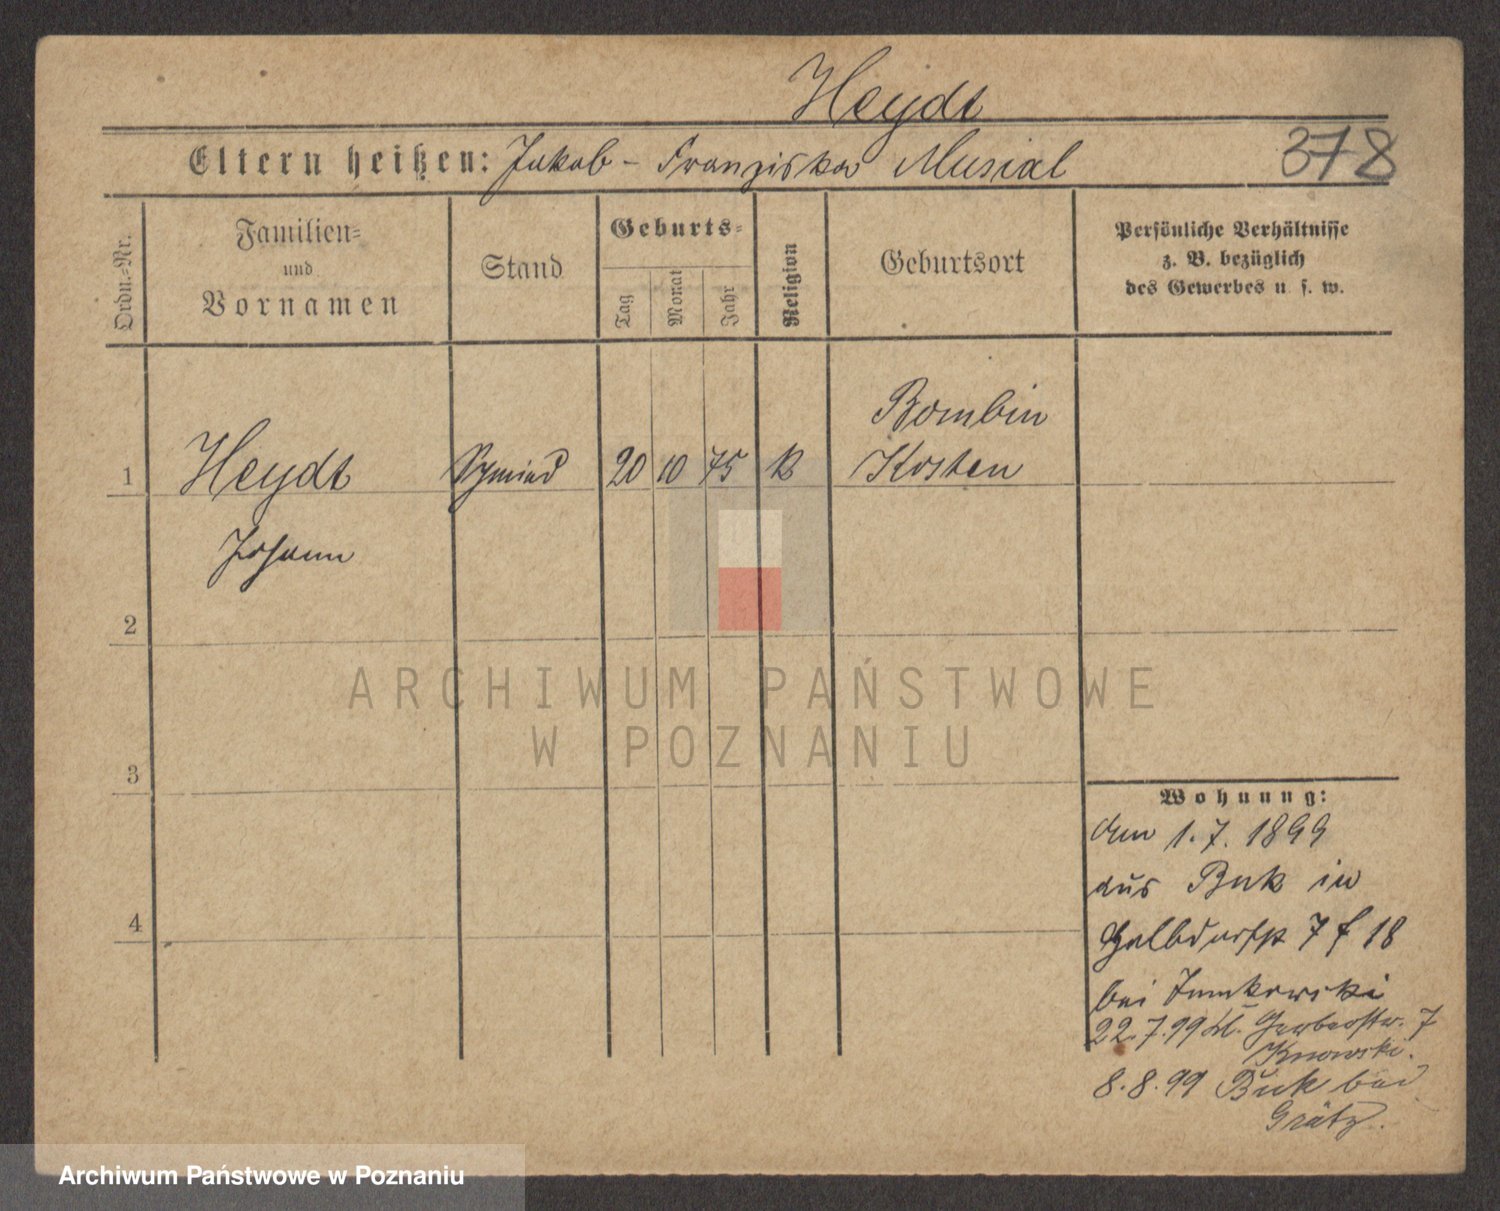 Heydt
Eltern heißen: Jakob - Franziska Musial
378
Ordn.-Nr.
Familien-
und
Vornamen
Stand
Geburts-
Tag
Monat
Jahr
Religion
Geburtsort
Persönliche Verhältnisse
z. B. bezüglich
des Gewerbes u. s. w.
Bombin
1 Heydt 20 10 75 k Kosten
Johann
2
3
4
ARCHIWUM PAŃSTWOWE
W POZNANIU
Wohnung:
den 1.7.1899
aus Buk in
Halbdorfstr 7 f 18
bei
22.7.99 kl. Gerberstr. 7
8.8.99 Buk
Grätz.
Archiwum Państwowe w Poznaniu